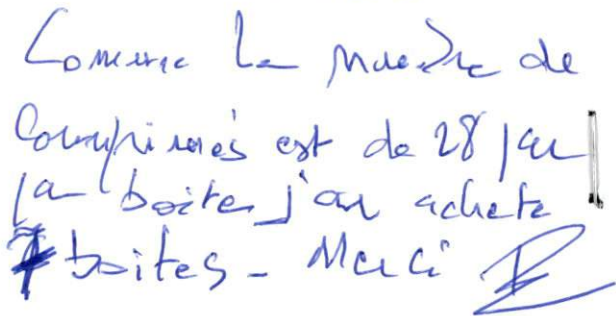 Comme le nombre de
Comprimés est de 28 par
par boites j'ai acheté
7 boites - Merci